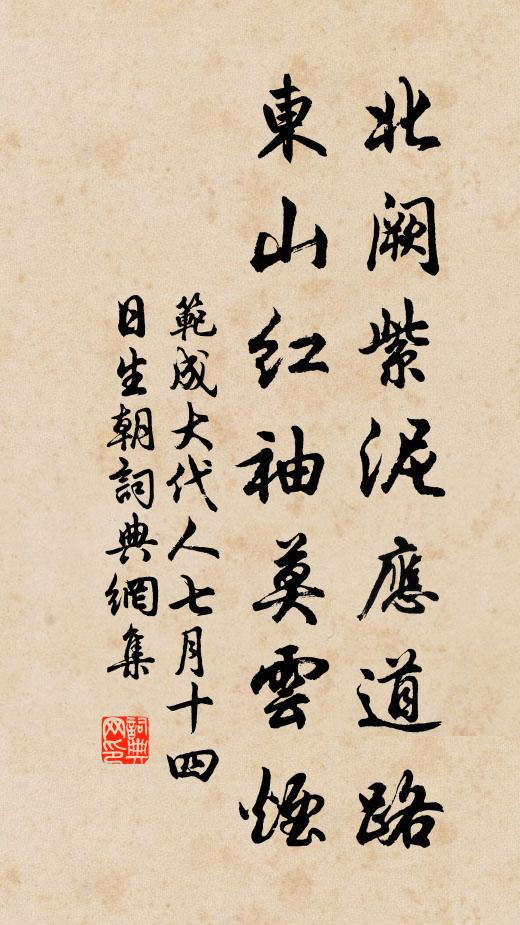 北闕紫泥應道路
東山紅袖莫雲煙
範成大代人七月十四
日生朝詞典網集
詞典網印